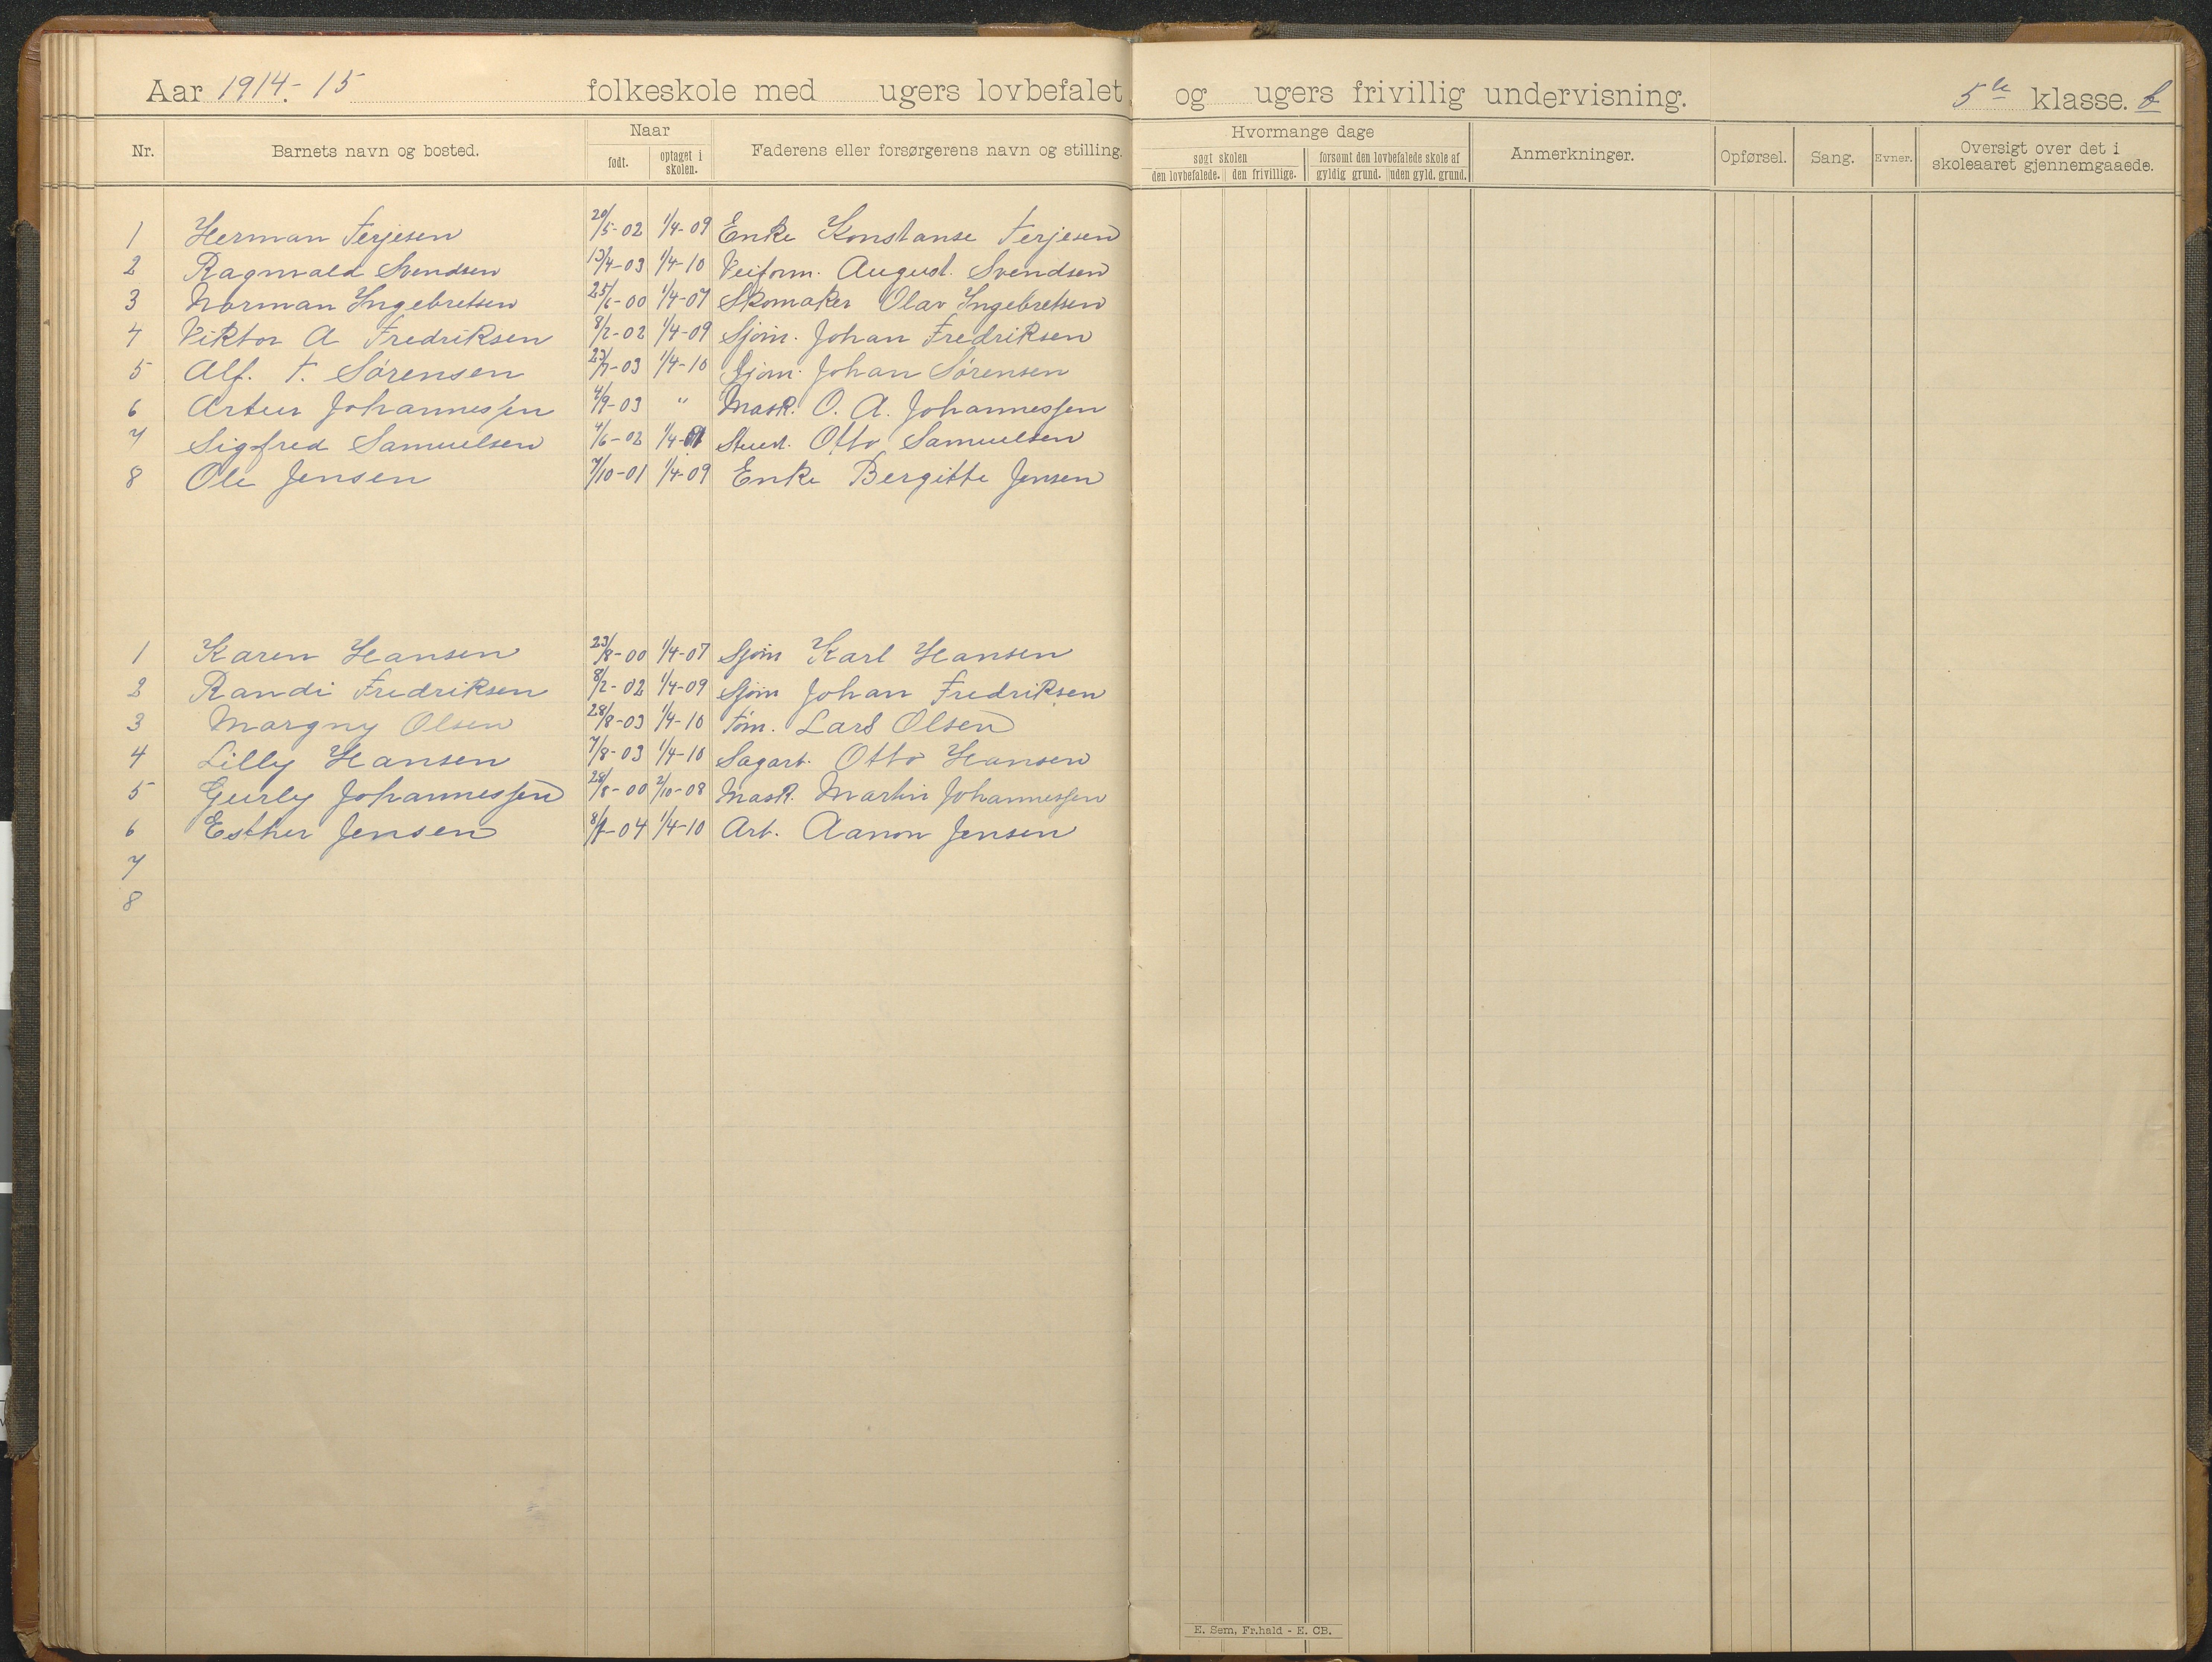 Aar 1914.-15 folkeskole med ugers lovbefalet og ugers frivillig undervisning. 5te klasse. b
Nr. Barnets navn og bosted. Naar Faderens eller forsørgerens navn og stilling. Hvormange dage Anmerkninger. Opførsel. Sang. Evner. Oversigt over det i skoleaaret gjennemgaaede.
født. optaget i skolen. søgt skolen forsømt den lovbefalede skole af
den lovbefalede. den frivillige. gyldig grund. uden gyld. grund.
1 Herman Terjesen 20/5-02 1/4-09 Enke Konstanse Terjesen
2 Ragnvald Svendsen 13/4-03 1/4-10 Veiform. August Svendsen
3 Norman Yngebretsen 25/6-00 1/4-07 Skomaker Olav Yngebretsen
4 Viktor A Fredriksen 8/2-02 1/4-09 Sjøm. Johan Fredriksen
5 Alf. T. Sørensen 23/7-03 1/4-10 Sjøm. Johan Sørensen
6 Artur Johannessen 4/9-03 " Mask. O. A. Johannessen
7 Sigfred Samuelsen 4/6-02 Stuert. Otto Samuelsen
8 Ole Jensen 7/10-01 1/4-09 Enke Bergitte Jensen
1 Karen Hansen 23/8-00 1/4-07 Sjøm Karl Hansen
2 Randi Fredriksen 8/2-02 1/4-09 Sjøm Johan Fredriksen
3 Margny Olsen 28/8-03 1/4-10 Tøm. Lars Olsen
4 Lilly Hansen 7/8-03 1/4-10 Sagarb. Otto Hansen
5 Gurly Johannessen 28/8-00 2/10-08 Mask. Martin Johannessen
6 Esther Jensen 1/4-10 Arb. Aanon Jensen
7
8
E. Sem, Fr.hald - E. CB.